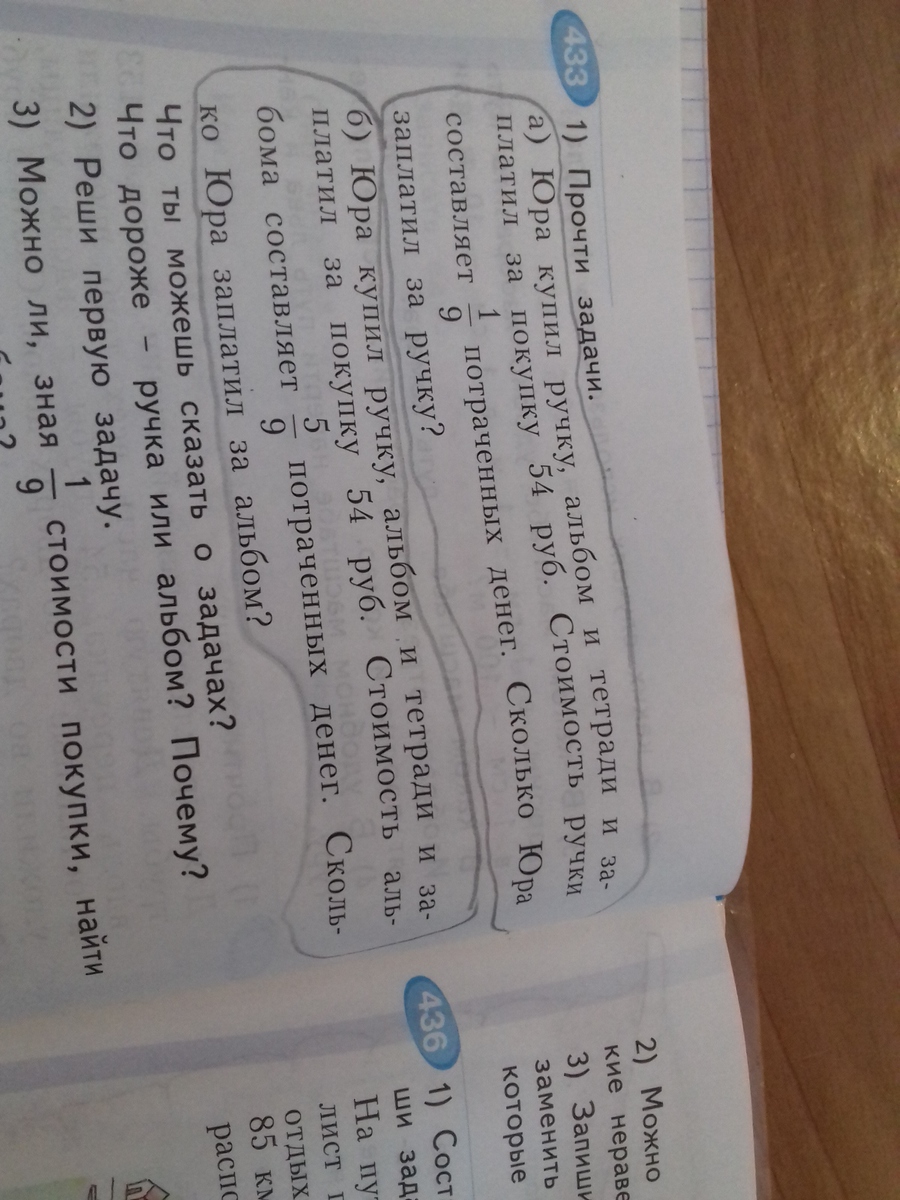 433 1) Прочти задачи.
а) Юра купил ручку, альбом и тетради и за-
платил за покупку 54 руб. Стоимость ручки
составляет 1/9 потраченных денег. Сколько Юра
заплатил за ручку?
б) Юра купил ручку, альбом и тетради и за-
платил за покупку 54 руб. Стоимость аль-
бома составляет 5/9 потраченных денег. Сколь-
ко Юра заплатил за альбом?
Что ты можешь сказать о задачах?
Что дороже – ручка или альбом? Почему?
2) Реши первую задачу.
3) Можно ли, зная 1/9 стоимости покупки, найти
2) Можно
кие нераве
3) Запиши
заменить
которые
436 1) Сост
ши зада
На пу
лист п
отдых
85 км
распо